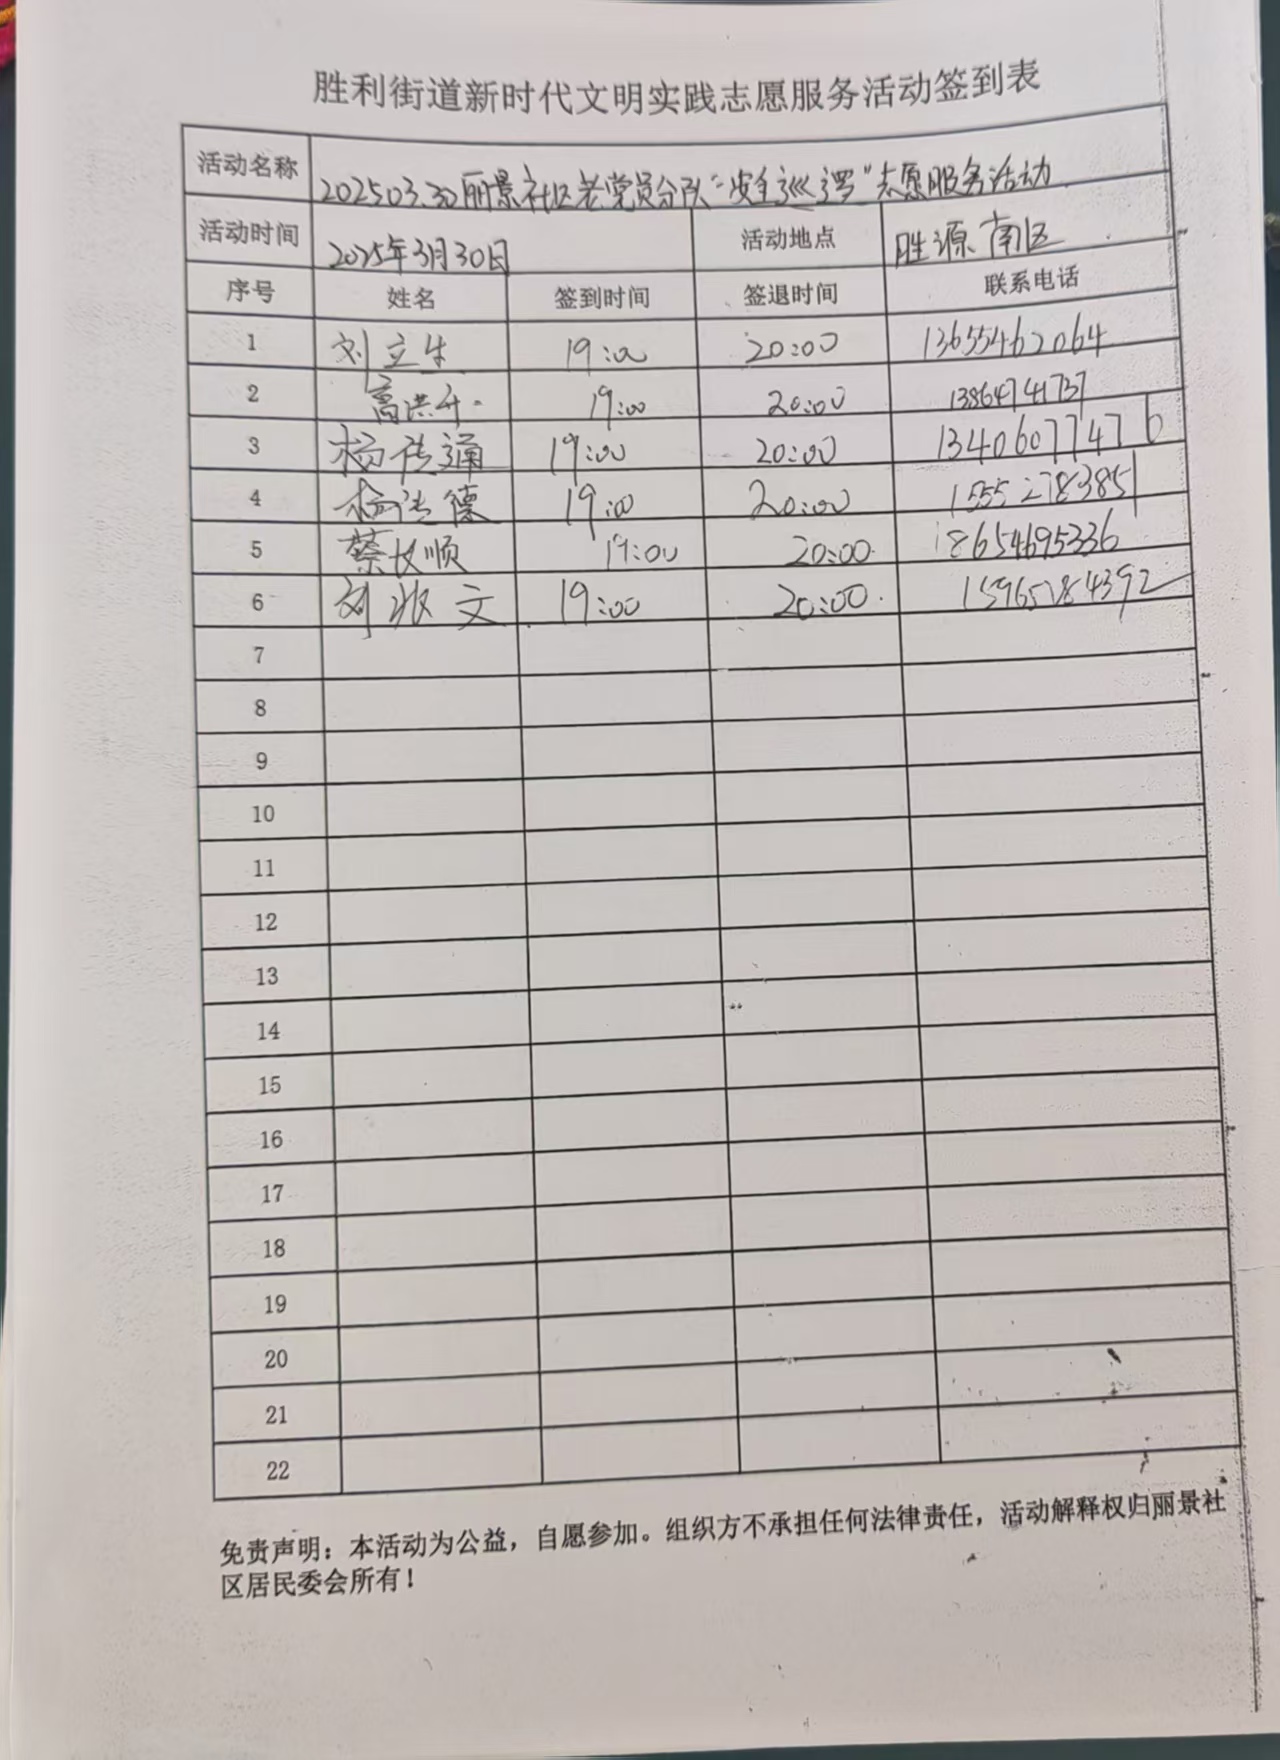 胜利街道新时代文明实践志愿服务活动签到表
活动名称 20250330丽景社区老党员分队"安全巡逻"志愿服务活动
活动时间 2025年3月30日 活动地点 胜源南区
序号 姓名 签到时间 签退时间 联系电话
1 刘立生 19:00 20:00 13655462064
2 高洪 19:00 20:00 13864741737
3 杨传通 19:00 20:00 13406077476
4 杨传德 19:00 20:00 15552783851
5 蔡长顺 19:00 20:00 18654695336
6 刘兆文 19:00 20:00 15965284392
7
8
9
10
11
12
13
14
15
16
17
18
19
20
21
22
免责声明：本活动为公益，自愿参加。组织方不承担任何法律责任，活动解释权归丽景社
区居民委会所有！